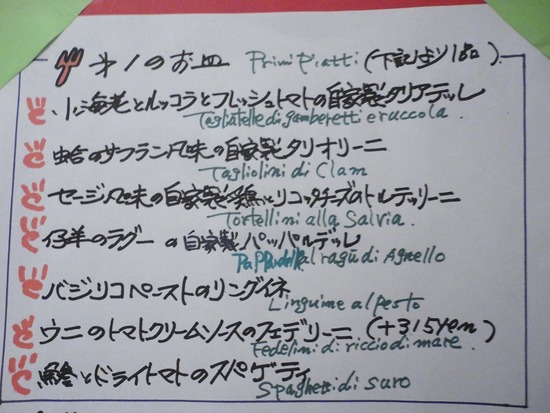 オ1のお皿 Primi Piatti (下記より1品)
小海老とルッコラとフレッシュトマトの自家製タリアテッレ
Tagliatelle di gamberetti e ruccola.
蛤のサフラン風味の自家製タリオリーニ
Tagliolini di Clam
セージ風味の自家製鶏とリコッタチーズのトルテッリーニ
Tortellini alla Salvia.
仔羊のラグーの自家製パッパルデッレ
Pappardelle al ragù di Agnello
バジリコペーストのリングイネ
Linguine al pesto
ウニのトマトクリームソースのフェデリーニ (+315yen)
Fedelini di riccio di mare.
鯵とドライトマトのスパゲティ
Spaghetti di suro